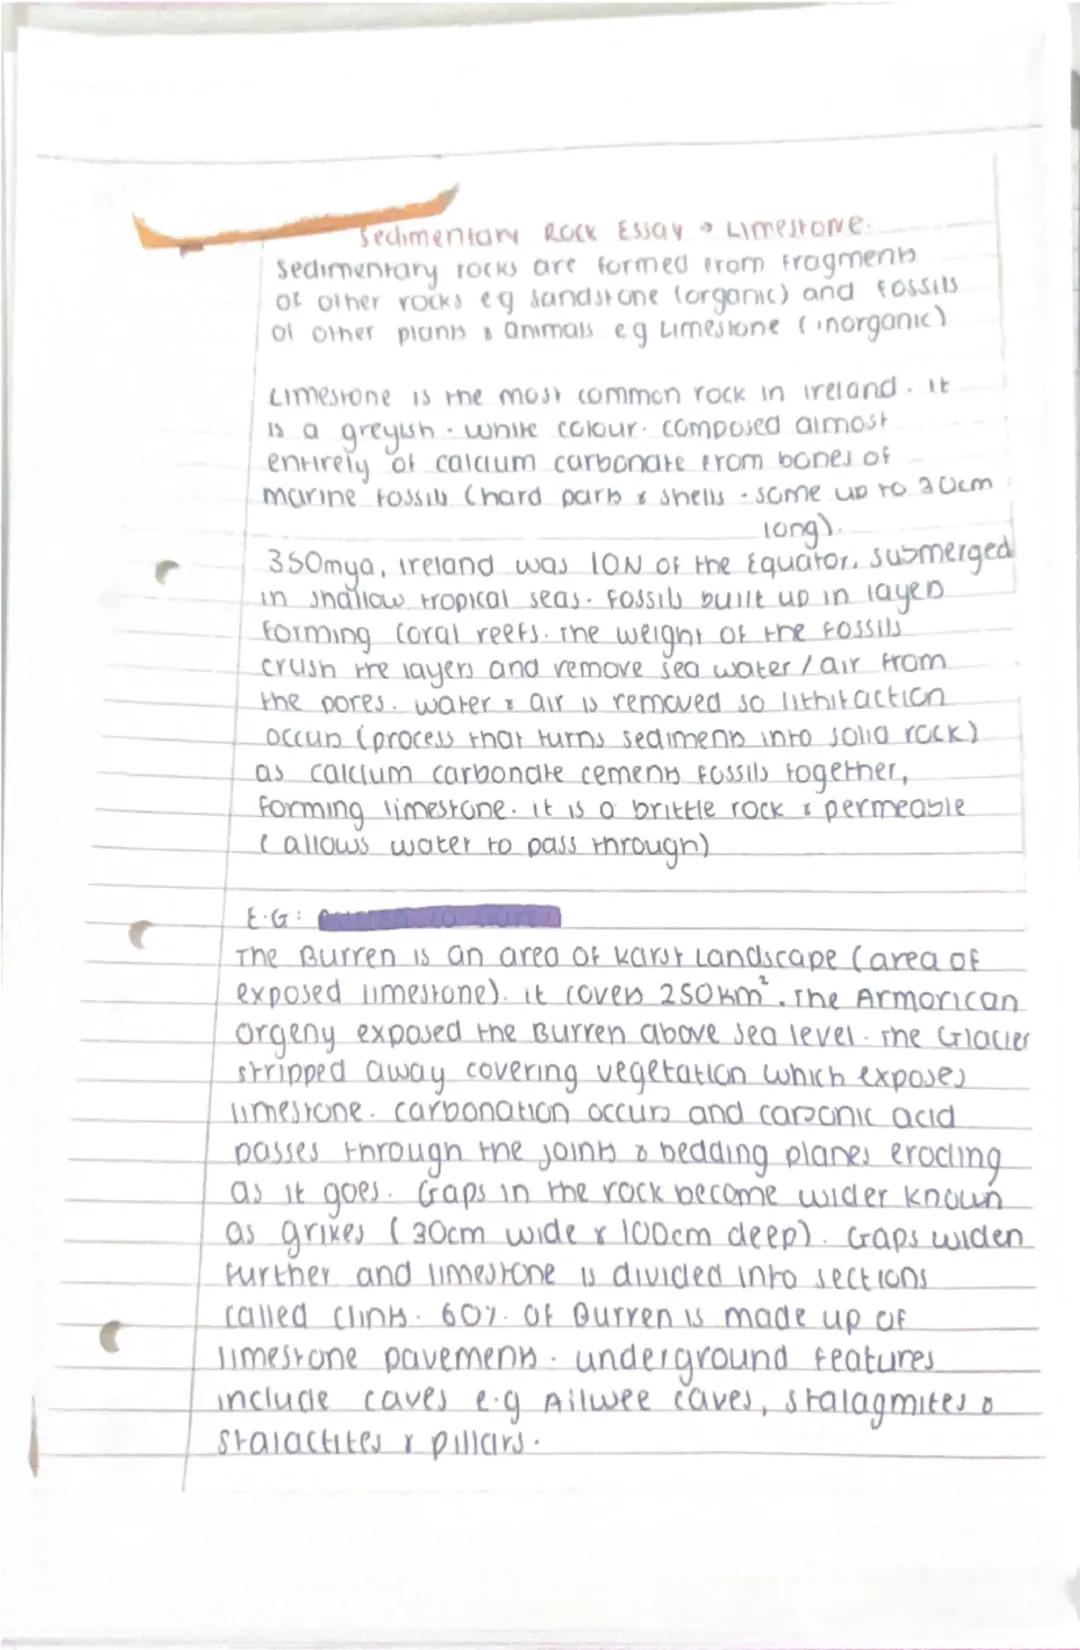 Sedimentary Rock Essay → Limestone.
Sedimentary rocks are formed from fragments
of other rocks eg sandstone (organic) and fossils
of other plants & animals eg Limestone (inorganic)
Limestone is the most common rock in ireland. It
is a greyish-white colour. composed almost
entirely of calcium carbonate from bones of
marine fossils (hard parts & shells - some up to 30cm
long).
350mya, ireland was 10N of the Equator, submerged
in shallow tropical seas. Fossils built up in layers
forming coral reefs. The weight of the fossils
crush the layers and remove sea water / air from
the pores. water & air is removed so lithification
occurs (process that turns sediments into solid rock)
as calcium carbonate cements fossils together,
forming limestone. It is a brittle rock & permeable
(allows water to pass through)
E.G:
The Burren is an area of karst Landscape (area of
exposed limestone). it covers 250km². The Armorican
orgeny exposed the Burren above sea level. The Glacier
stripped away covering vegetation which exposes
limestone. carbonation occurs and carbonic acid
passes through the joints & bedding planes eroding
as it goes. Gaps in the rock become wider known
as grikes (30cm wide & 100cm deep). Gaps widen
further and limestone is divided into sections
called clints. 60% of Burren is made up of
limestone pavements. underground features
include caves e.g Ailwee caves, stalagmites &
stalactites & pillars.